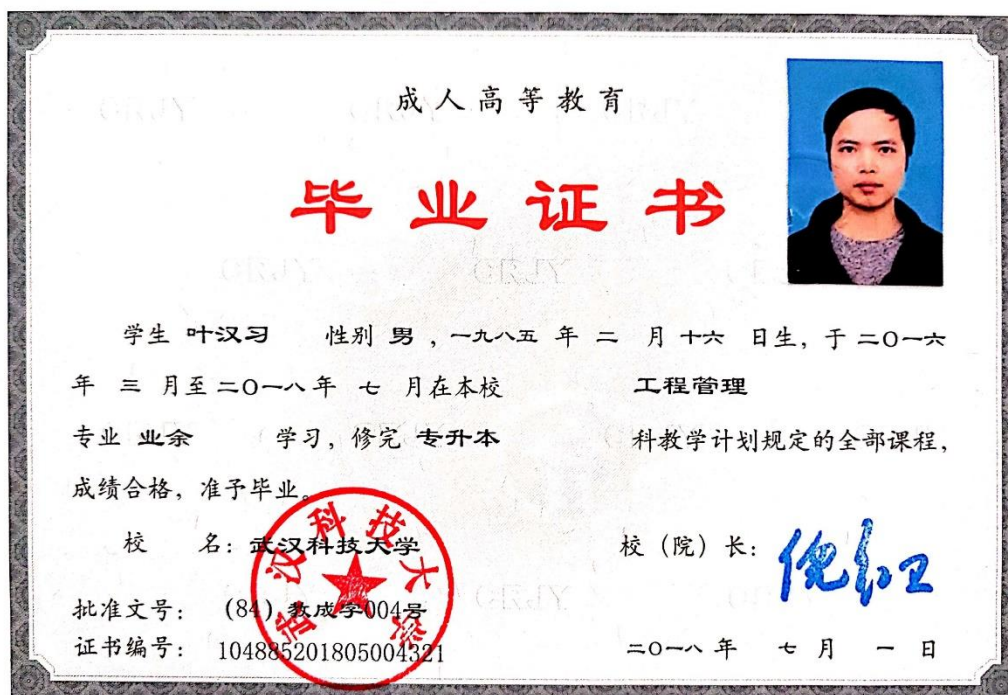 成人高等教育
毕业证书
学生 叶汉习 性别 男 ，一九八五 年 二 月 十六 日生，于 二〇一六
年 三 月至 二〇一八 年 七 月在本校 工程管理
专业 业余 学习，修完 专升本 科教学计划规定的全部课程，
成绩合格，准予毕业。
校 名：武汉科技大学 校（院）长： 倪红卫
批准文号： (84)教成字004号
证书编号： 104885201805004321 二〇一八 年 七 月 一 日
武汉科技大学